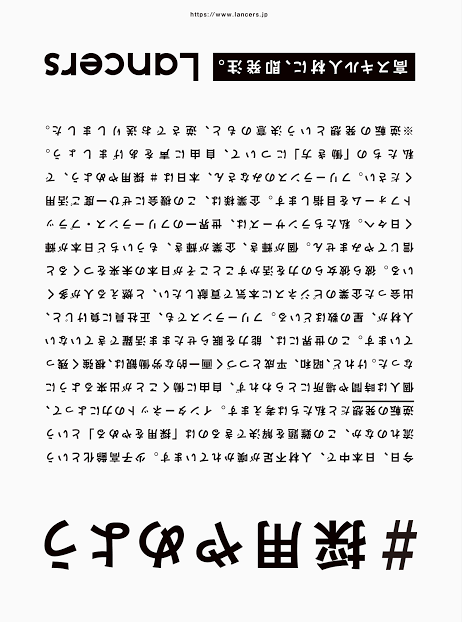 #採用やめよう
今日、日本中で、人材不足が嘆かれています。少子高齢化という
流れのなか、この難題を解決できるのは「採用をやめる」という
逆転の発想だと私たちは考えます。インターネットの力によって、
個人は時間や場所にとらわれず、自由に働くことが出来るように
なった。けれど、昭和、平成とつづく画一的な労働観は、根強く残っ
ています。この世界には、能力を眠らせたまま活躍できていない
人材が、星の数ほどいる。フリーランスでも、正社員に負けじと、
出会った企業のビジネスに本気で貢献したい、と燃える人が多く
いる。彼ら彼女らの力を活かすことこそが日本の未来をつくると
信じてやみません。個が輝き、企業が輝き、もういちど日本が輝
く日々へ。私たちランサーズは、世界一のフリーランス・プラッ
トフォームを目指します。企業様は、この機会にぜひ一度ご活用
ください。フリーランスのみなさん、本日は#採用やめよう、で
私たちの「働き方」について、自由に声をあげましょう。
※逆転の発想という決意のもと、逆さでお送りしました。
高スキル人材に、即発注。 Lancers
https://www.lancers.jp